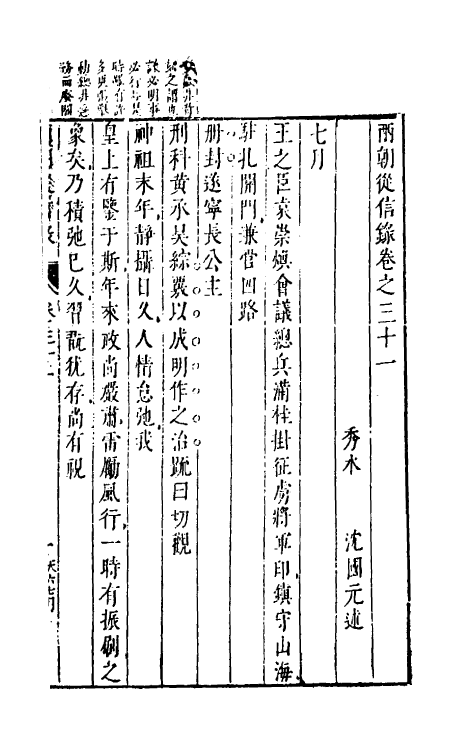 兩朝從信錄卷之三十一
秀水 沈國元述
七月
王之臣袁崇煥會議總兵滿桂掛征虜將軍印鎮守山海
駐扎關門兼管四路
册封遂寧長公主
刑科黃承昊綜覈以成明作之治疏曰切觀
神祖末年靜攝日久人情怠弛我
皇上有鑒于斯年來政尚嚴肅雷勵風行一時有振刷之
象矣乃積弛已久習翫犹存尚有視